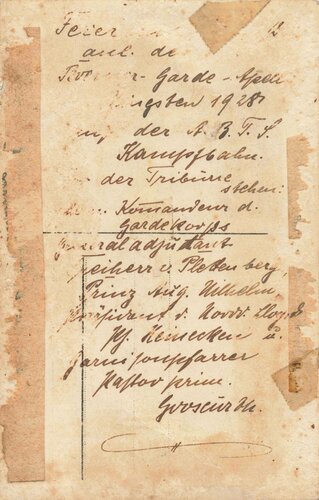 Feier
anl. de
Garde-Apell
ingsten 1928
der A. B. T. S.
Kampfbahn.
der Tribüne
stehen:
Komandeur d.
Gardekorps
eneraladjudant
reiherr v. Plettenberg,
Prinz Aug. Wilhelm,
Präsident v. Nordd. Lloyd
Heineken u.
Garnisonpfarrer
Pastor prim.